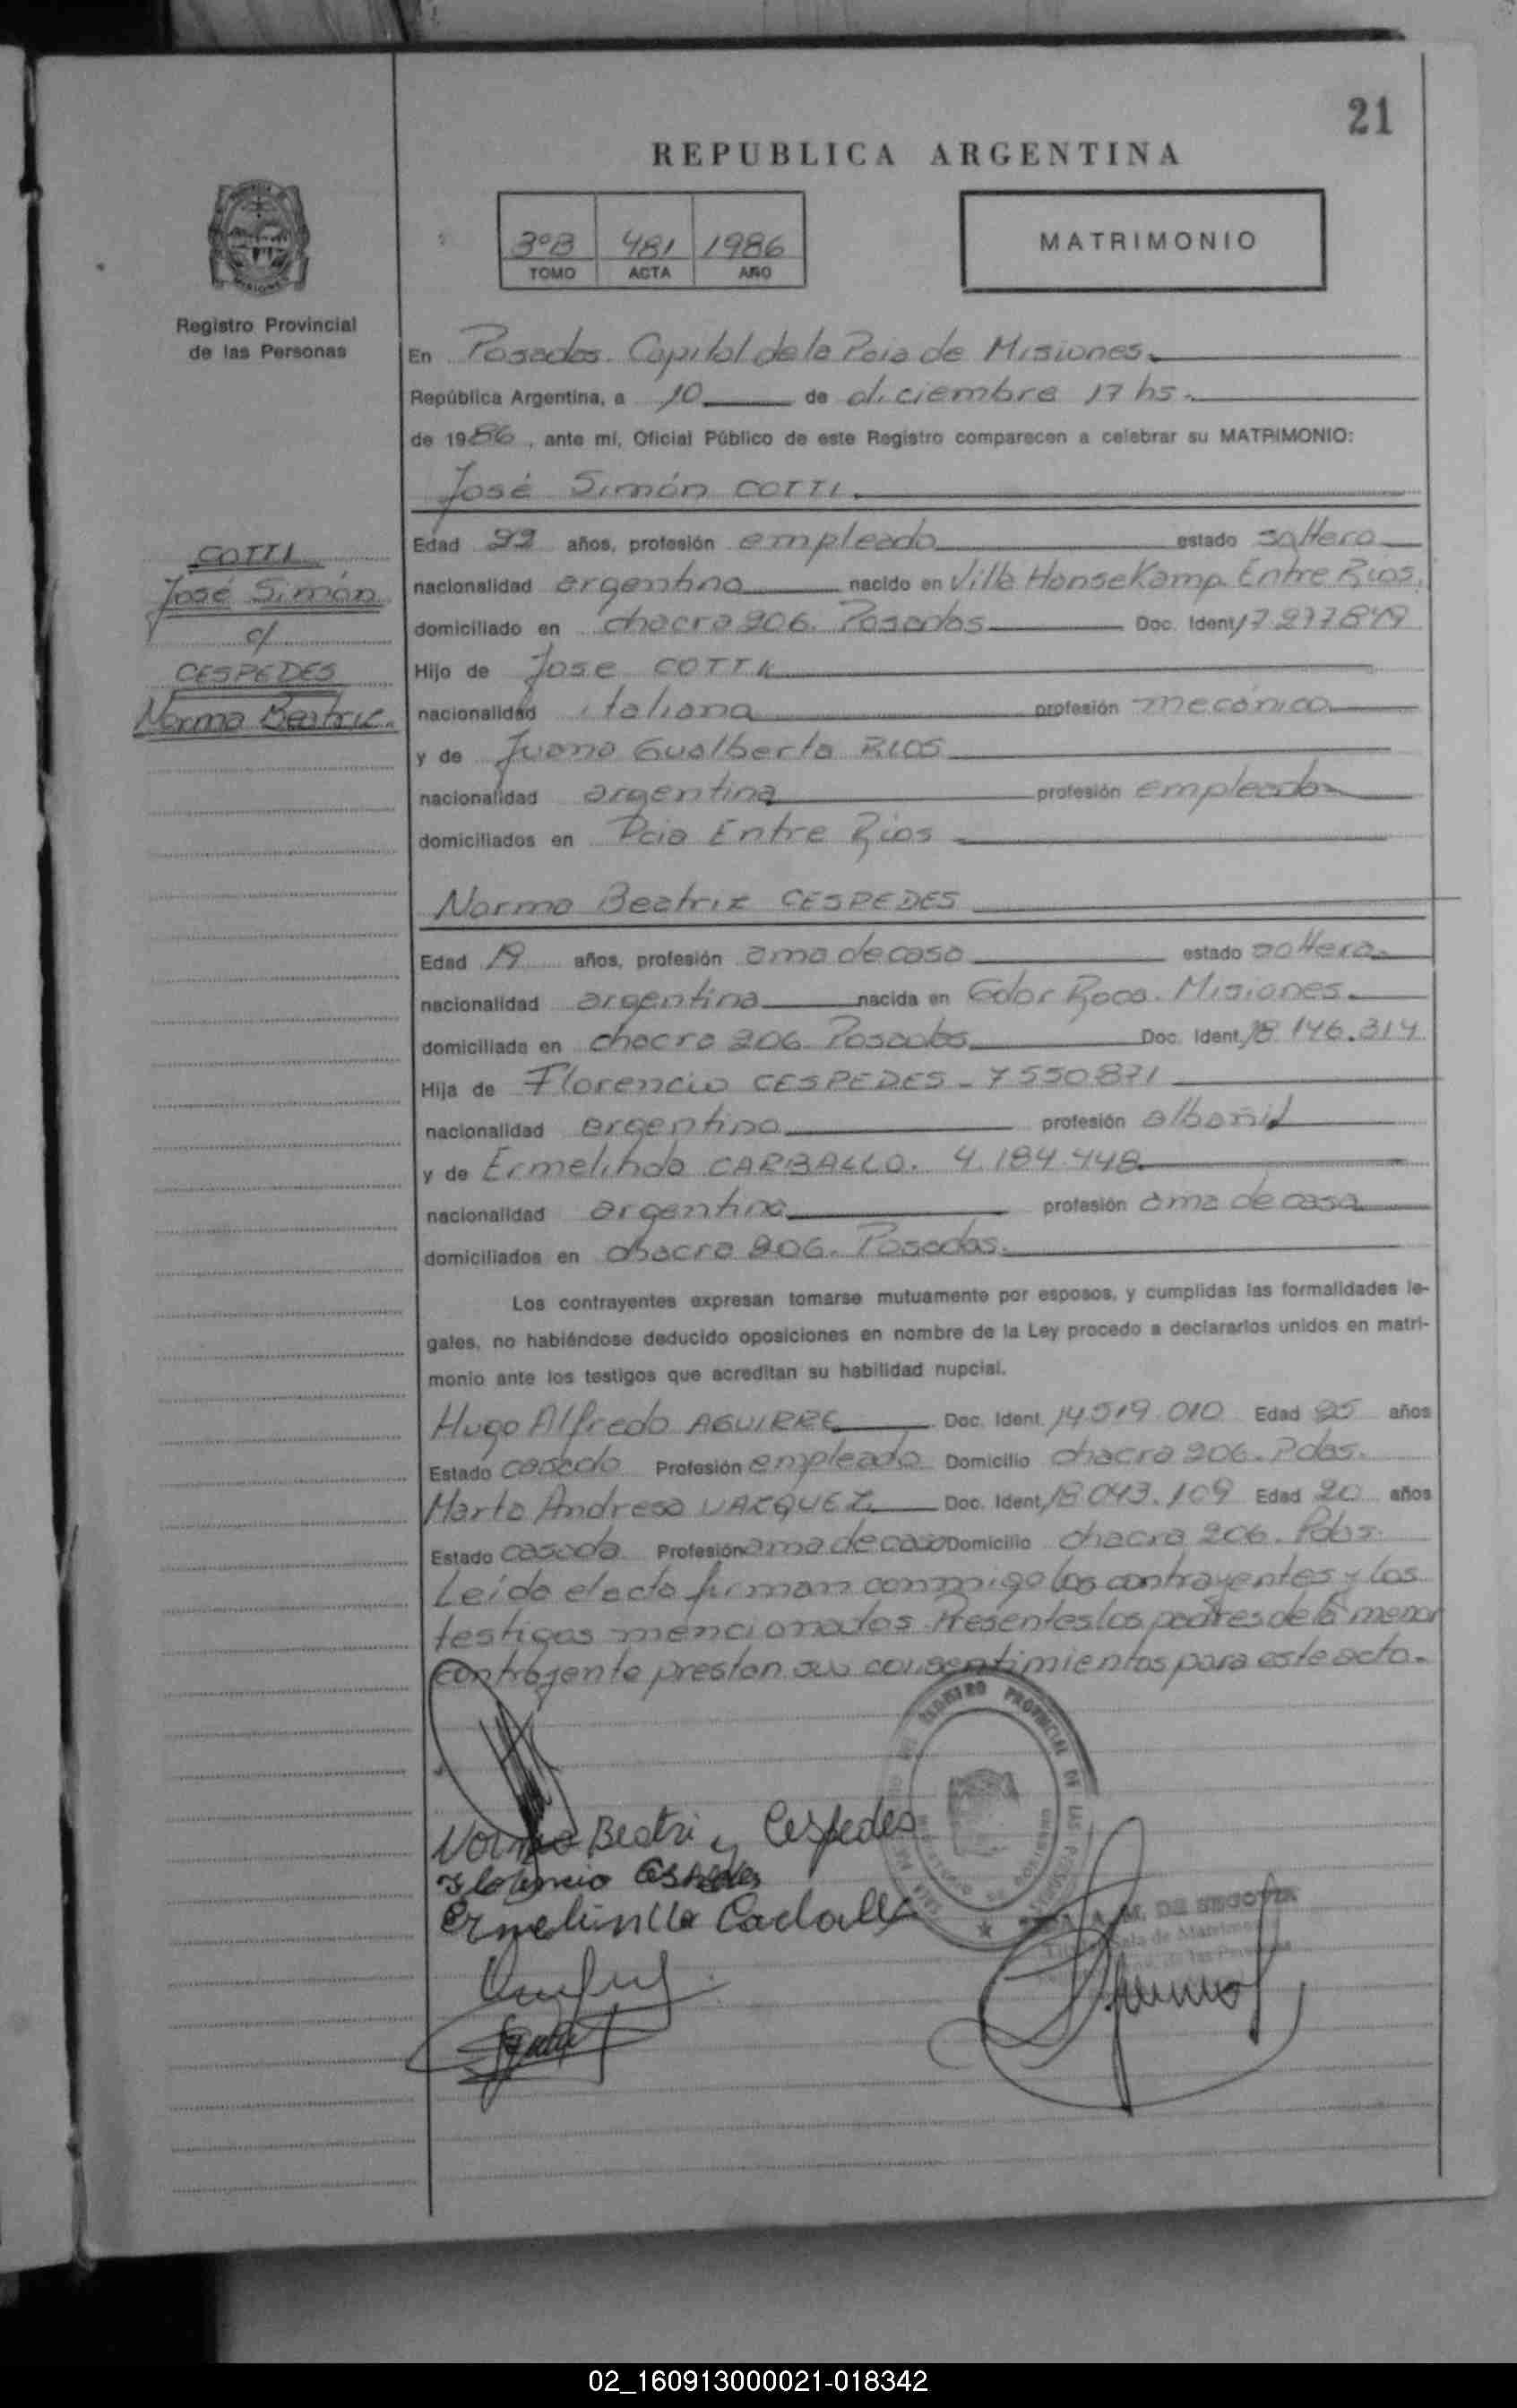 21
REPUBLICA ARGENTINA
3ºB 481 1986
TOMO ACTA AÑO
MATRIMONIO
Registro Provincial
de las Personas
En Posadas. Capital de la Pcia de Misiones
República Argentina, a 10 de diciembre 17 hs.
de 1986, ante mí, Oficial Público de este Registro comparecen a celebrar su MATRIMONIO:
José Simón COTTI
COTTI
José Simón
c/
CESPEDES
Norma Beatriz
Edad 22 años, profesión empleado estado soltero
nacionalidad argentino nacido en Villa HonseKamp. Entre Rios.
domiciliado en chacra 206. Posadas Doc. Ident.
Hijo de Jose COTTI
nacionalidad italiana profesión mecánico
y de Juana Gualberta RIOS
nacionalidad argentina profesión empleada
domiciliados en Pcia Entre Rios
Norma Beatriz CESPEDES
Edad 19 años, profesión ama de casa estado soltera
nacionalidad argentina nacida en Gdor Roca. Misiones
domiciliada en chacra 206. Posadas Doc. Ident. 18.146.314
Hija de Florencio CESPEDES - 7550871
nacionalidad argentino profesión albañil
y de Ermelinda CARBALLO. 4.184.448
nacionalidad argentina profesión ama de casa
domiciliados en chacra 206. Posadas.
Los contrayentes expresan tomarse mutuamente por esposos, y cumplidas las formalidades le-
gales, no habiéndose deducido oposiciones en nombre de la Ley procedo a declararlos unidos en matri-
monio ante los testigos que acreditan su habilidad nupcial.
Hugo Alfredo AGUIRRE Doc. Ident. 14.519.010 Edad 25 años
Estado casado Profesión empleado Domicilio chacra 206. Pdas.
Marta Andresa VAZQUEZ Doc. Ident. 18.043.109 Edad 20 años
Estado casada Profesión ama de casa Domicilio chacra 206. Pdas.
Leído el acta firman conmigo los contrayentes y los
testigos mencionados. Presentes los padres de la menor
contrayente prestan sus consentimientos para este acto.
REGISTRO PROVINCIAL DE LAS PERSONAS
Norma Beatriz Cespedes
Florencio Cespedes
M. DE SEGOVIA
02_160913000021-018342